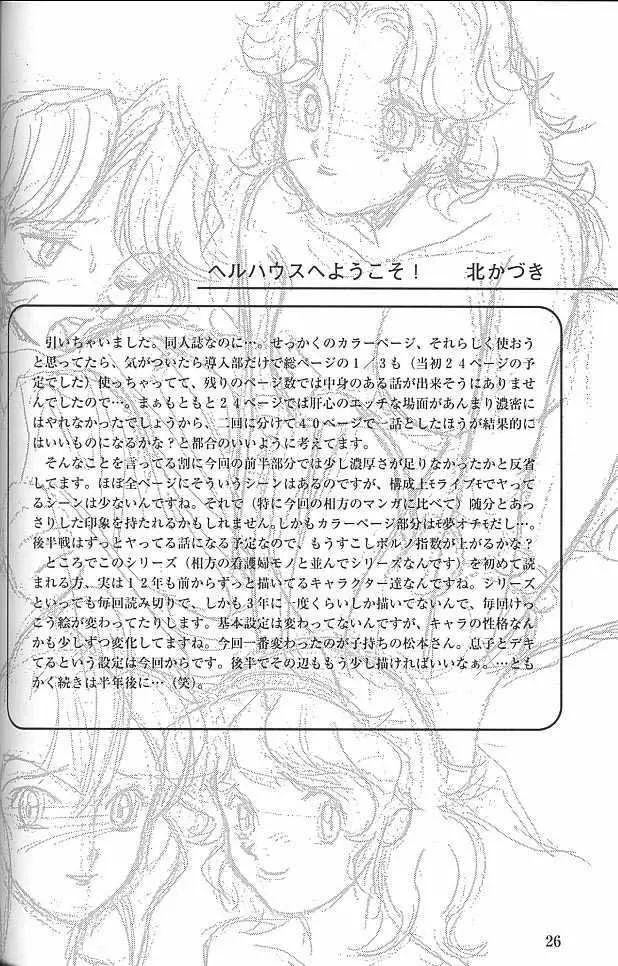 ヘルハウスへようこそ！　北かづき
　引いちゃいました。同人誌なのに…。せっかくのカラーページ、それらしく使おう
と思ってたら、気がついたら導入部だけで総ページの１／３も（当初２４ページの予
定でした）使っちゃってて、残りのページ数では中身のある話が出来そうにありませ
んでしたので…。まぁもともと２４ページでは肝心のエッチな場面があんまり濃密に
はやれなかったでしょうから、二回に分けて４０ページで一話としたほうが結果的に
はいいものになるかな？と都合のいいように考えてます。
　そんなことを言ってる割に今回の前半部分では少し濃厚さが足りなかったかと反省
してます。ほぼ全ページにそういうシーンはあるのですが、構成上ﾓライブﾓでヤって
るシーンは少ないんですね。それで（特に今回の相方のマンガに比べて）随分とあっ
さりした印象を持たれるかもしれません。しかもカラーページ部分はﾓ夢オチﾓだし…。
後半戦はずっとヤってる話になる予定なので、もうすこしポルノ指数が上がるかな？
　ところでこのシリーズ（相方の看護婦モノと並んでシリーズなんです）を初めて読
まれる方、実は１２年も前からずっと描いてるキャラクター達なんですね。シリーズ
といっても毎回読み切りで、しかも３年に一度くらいしか描いてないんで、毎回けっ
こう絵が変わってたりします。基本設定は変わってないんですが、キャラの性格なん
かも少しずつ変化してますね。今回一番変わったのが子持ちの松本さん。息子とデキ
てるという設定は今回からです。後半でその辺ももう少し描ければいいなぁ。…とも
かく続きは半年後に…（笑）。
26